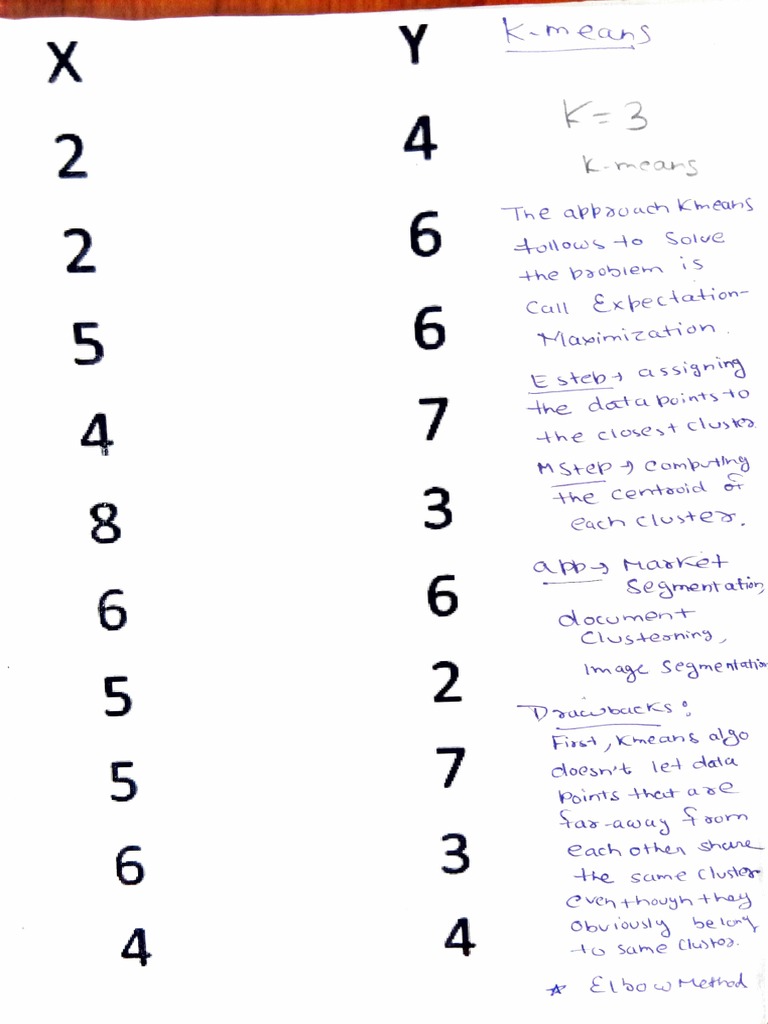 X Y
2 4
2 6
5 6
4 7
8 3
6 6
5 2
5 7
6 3
4 4
K-means
K = 3
K-means
The approach Kmeans
follows to solve
the problem is
Call Expectation-
Maximization.
E step → assigning
the data points to
the closest cluster
M Step → computing
the centroid of
each cluster.
app → Market
Segmentation,
document
Clusterning,
image segmentation
Drawbacks:
First, Kmeans algo
doesn't let data
points that are
far-away from
each other share
the same cluster
even though they
obviously belong
to same cluster.
* Elbow Method